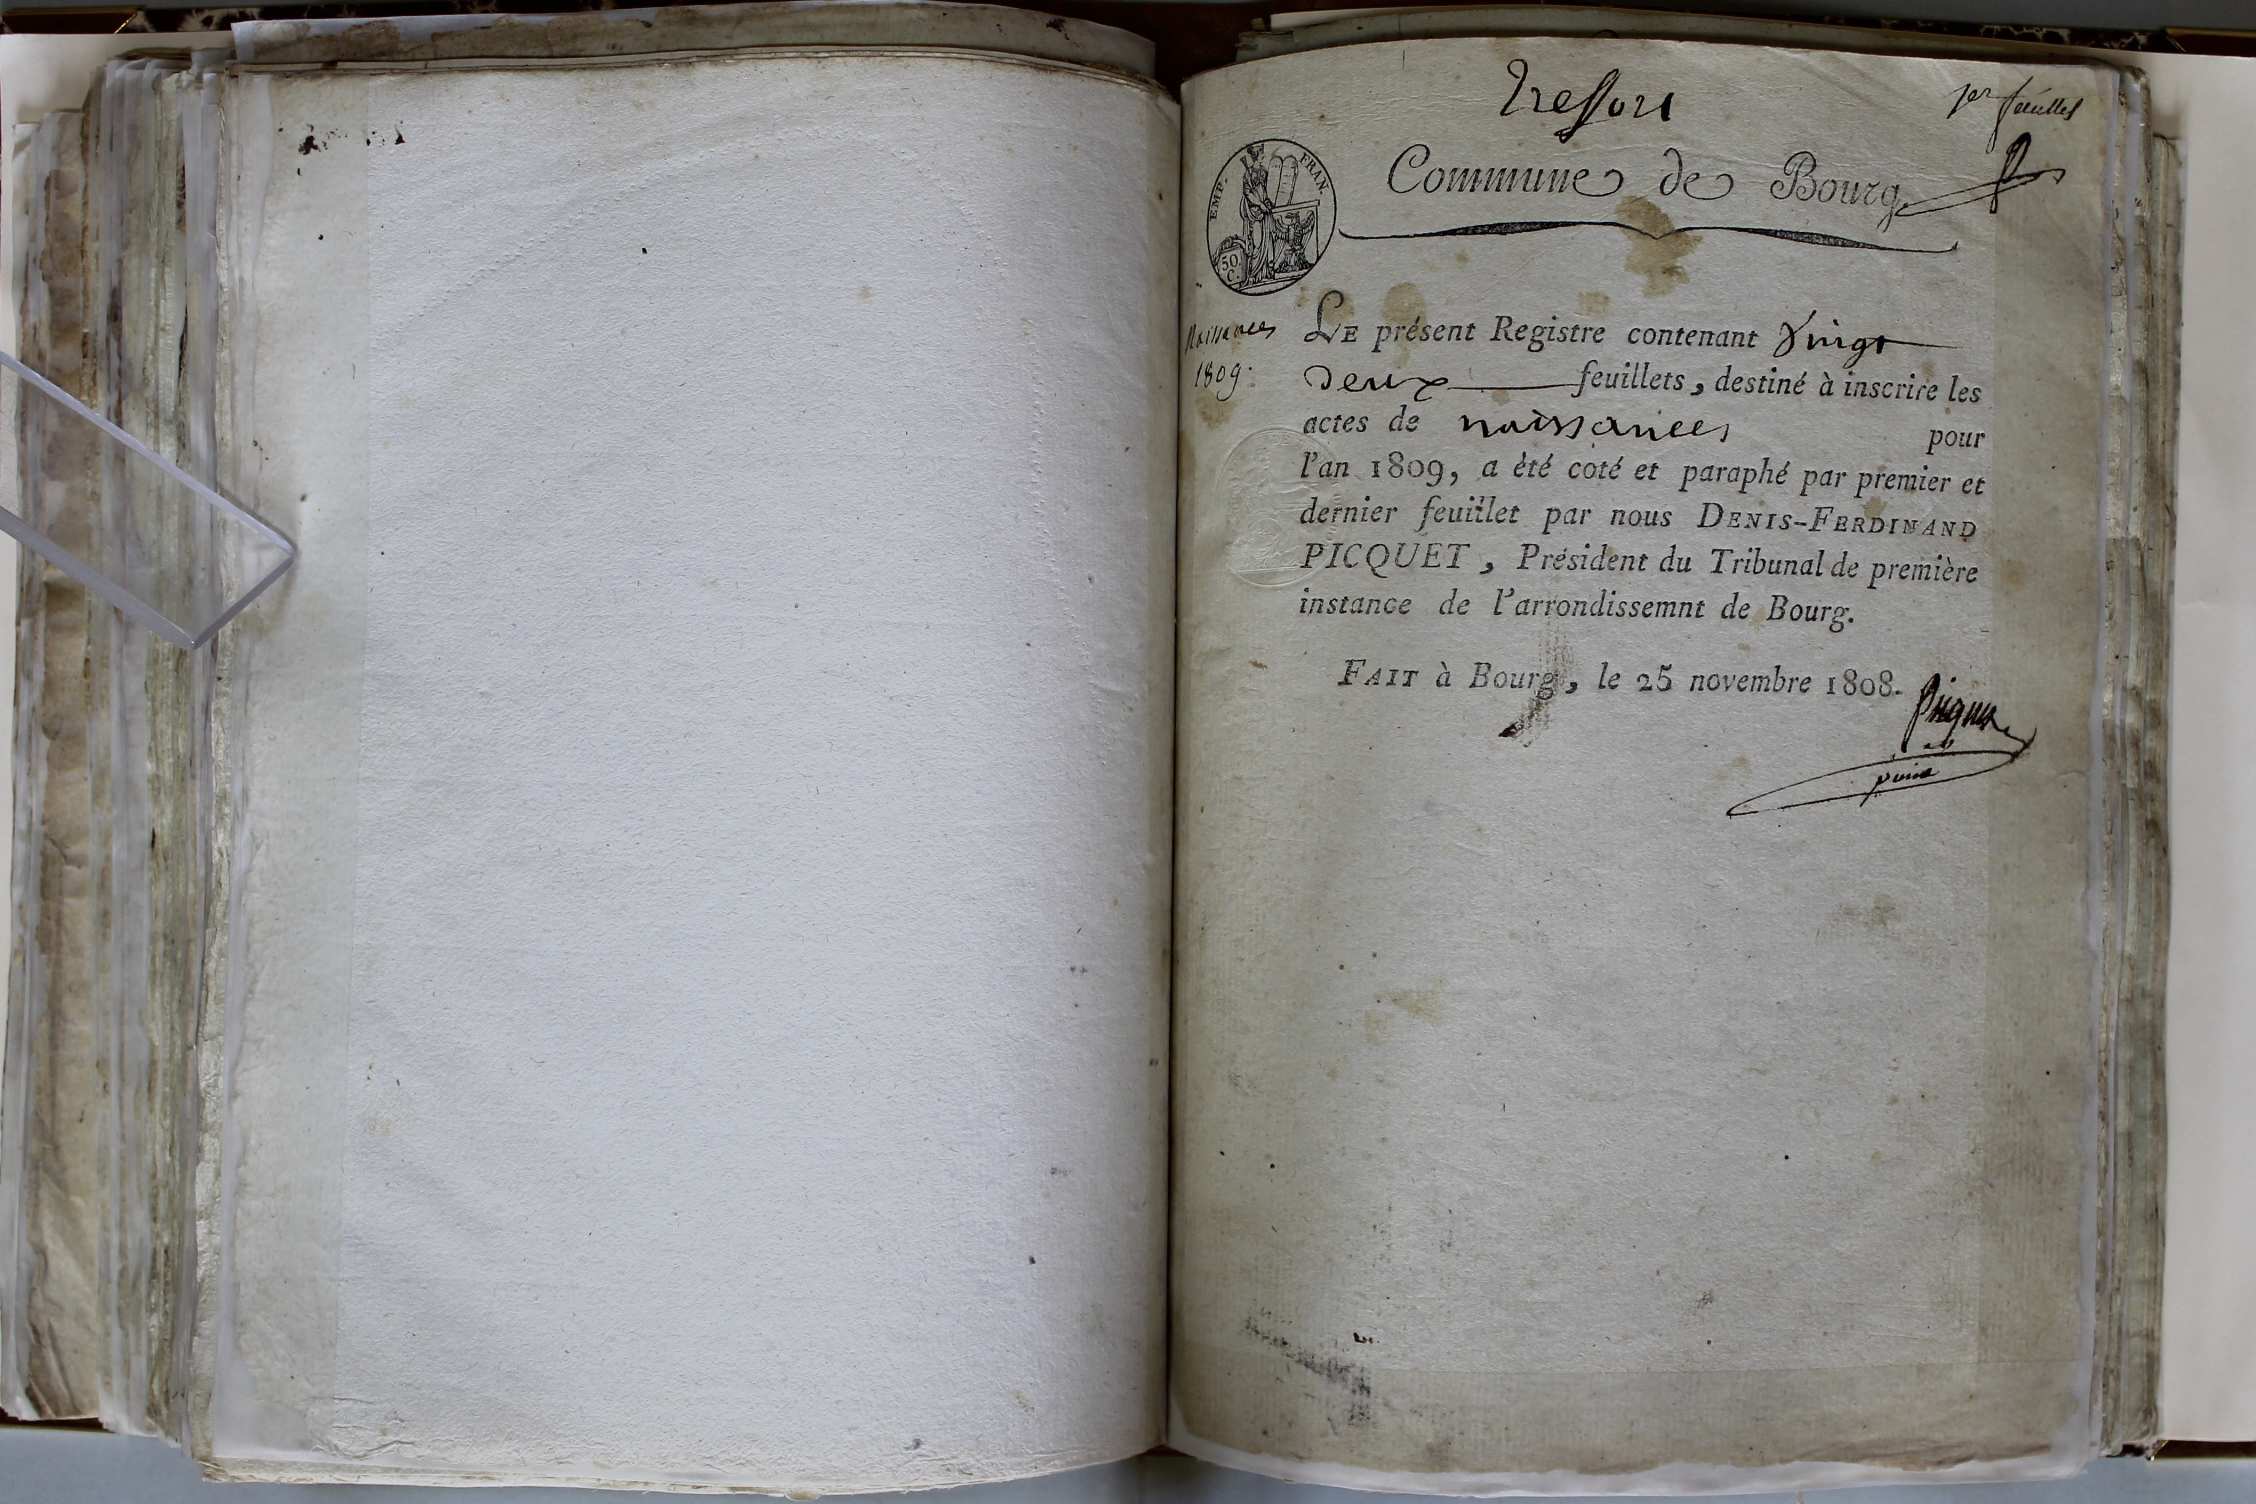 Tressort
1er feuillet
Commune de Bourg.
EMP. FRAN.
50
C.
Naissances
1809.
LE présent Registre contenant Vingt
deux feuillets, destiné à inscrire les
actes de naissances pour
l'an 1809, a été coté et paraphé par premier et
dernier feuillet par nous DENIS-FERDINAND
PICQUET, Président du Tribunal de première
instance de l'arrondissemnt de Bourg.
FAIT à Bourg, le 25 novembre 1808.
Picquet